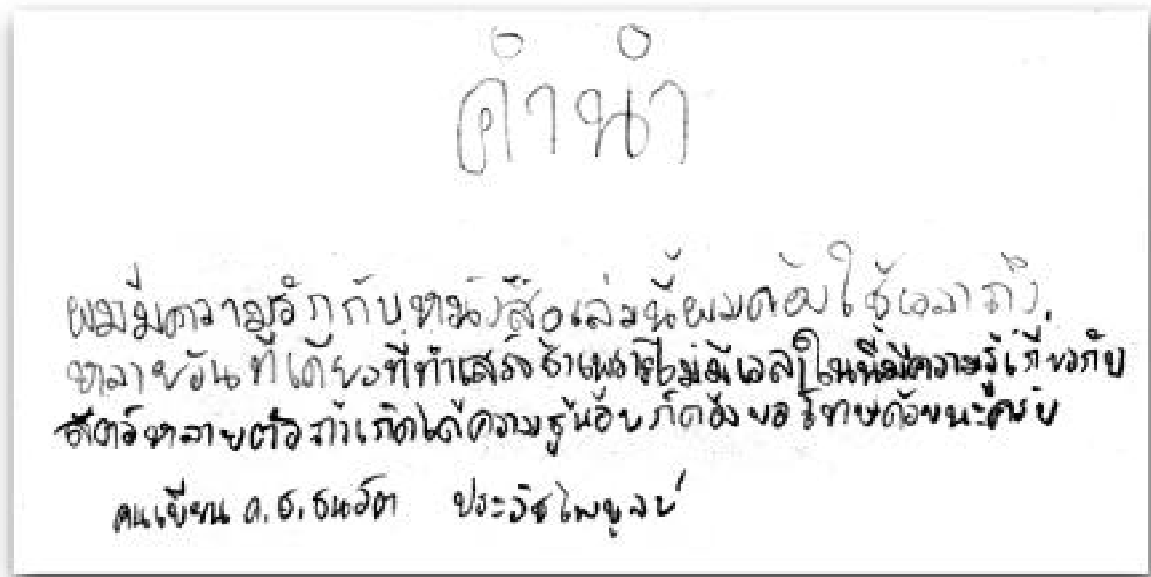 คำนำ
ผมมีความรักกับหนังสือเล่มนี้ผมต้องใช้เวลาถึง
หลายวันทีเดียวที่ทำเสร็จช้าเพราะไม่มีเวลาในนี้มีความรู้เกี่ยวกับ
สัตว์หลายตัวถ้าเกิดได้ความรู้น้อยก็ต้องขอโทษด้วยนะครับ
คนเขียน ด.ช.ธนวัต